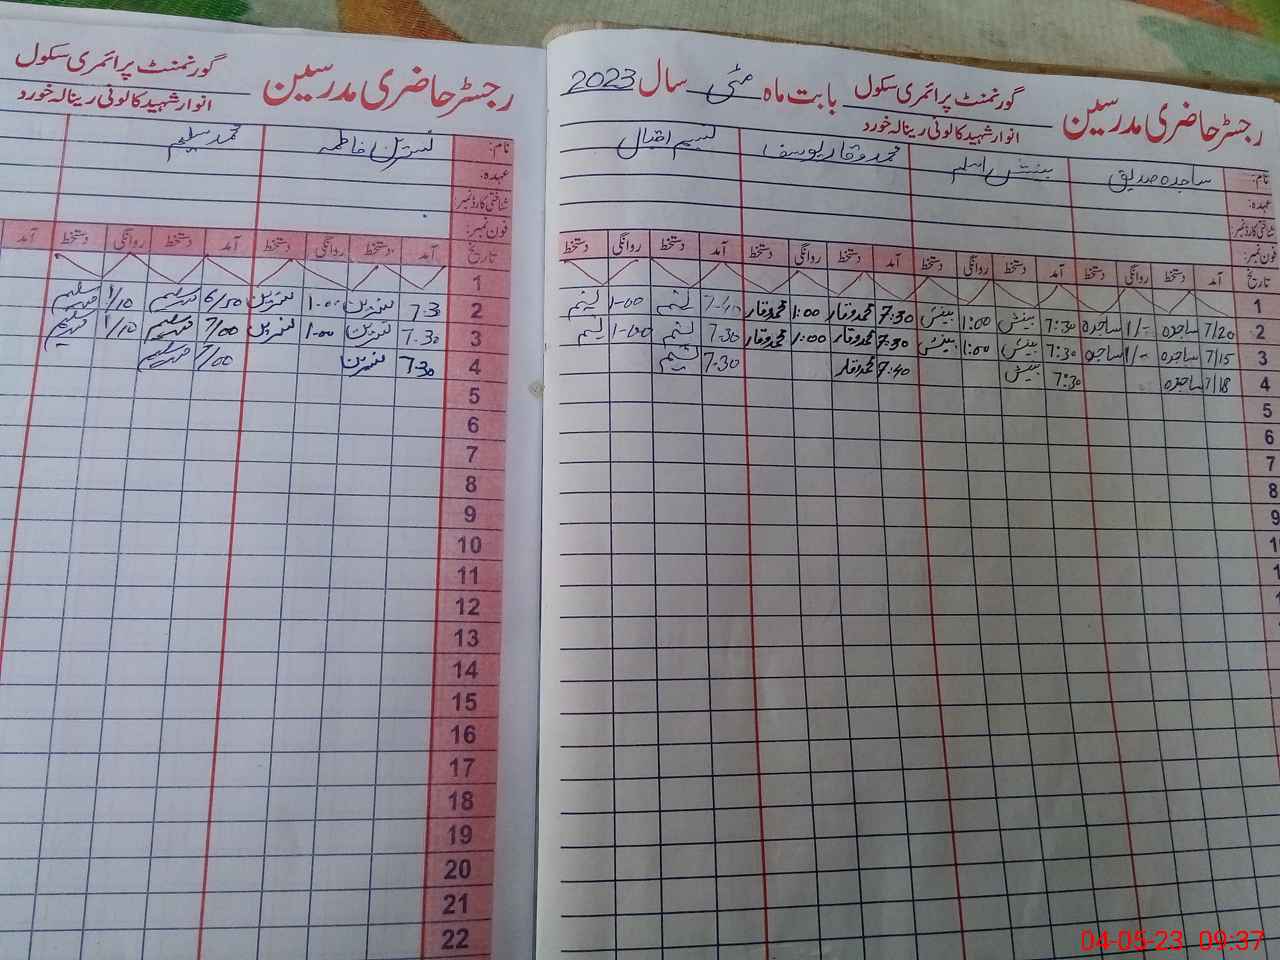 رجسٹر حاضری مدرسین گورنمنٹ پرائمری سکول انوار شہید کالونی رینالہ خورد بابت ماہ مئی سال 2023
نام: ساجدہ صدیق بینش اسلم محمد وقار یوسف نسیم اختر
عہدہ:
شناختی کارڈ نمبر:
فون نمبر:
تاریخ آمد دستخط روانگی دستخط آمد دستخط روانگی دستخط آمد دستخط روانگی دستخط آمد دستخط روانگی دستخط
1
2 7/20 ساجدہ 1/- ساجدہ 7:30 بینش 1:00 بینش 7:30 محمد وقار 1:00 محمد وقار 7-40 نسیم 1-00 نسیم
3 7/15 ساجدہ 1/- ساجدہ 7:30 بینش 1:00 بینش 7:30 محمد وقار 1:00 محمد وقار 7.30 نسیم 1-00 نسیم
4 7/18 ساجدہ 7:30 بینش 7:40 محمد وقار 7-30 نسیم
5
6
7
8
9
رجسٹر حاضری مدرسین گورنمنٹ پرائمری سکول
انوار شہید کالونی رینالہ خورد
نام: نسرین فاطمہ محمد سلیم
عہدہ:
شناختی کارڈ نمبر:
فون نمبر:
تاریخ آمد دستخط روانگی دستخط آمد دستخط روانگی دستخط آمد
1
2 7.3 نسرین 1.00 نسرین 6/50 محمد سلیم 1/10 محمد سلیم
3 7.30 نسرین 1.00 نسرین 7/00 محمد سلیم 1/10 محمد سلیم
4 7.30 نسرین 7/00 محمد سلیم
5
6
7
8
9
10
11
12
13
14
15
16
17
18
19
20
21
22
04-05-23 09:37